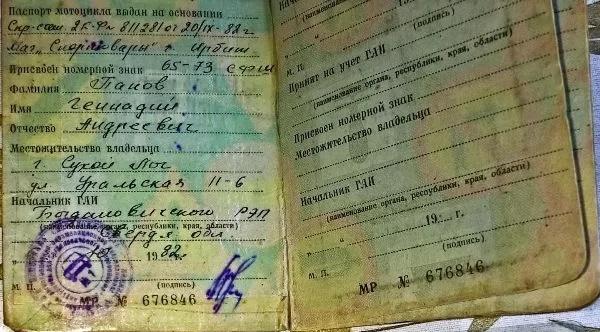 Паспорт мотоцикла выдан на основании
Спр-счет 25-Фч 811281 от 20/IX-82 г
Маг. "Спорттовары" г. Ирбит
Присвоен номерной знак 65-73 СФМ
Фамилия Панов
Имя Геннадий
Отчество Андреевич
Местожительство владельца
г. Сухой Лог
ул Уральская 11-6
Начальник ГАИ
Богдановичского РЭП
(наименование органа, республики, края, области)
Свердл обл
1982 г.
М. П. (подпись)
МР № 676846
Начальник ГАИ
(наименование
(подпись)
М. П.
Принят на учет ГАИ
(наименование органа, республики, края, области)
Присвоен номерной знак
Местожительство владельца
Начальник ГАИ
(наименование органа, республики, края, области)
" " 19 г.
М. П. (подпись)
МР № 676846